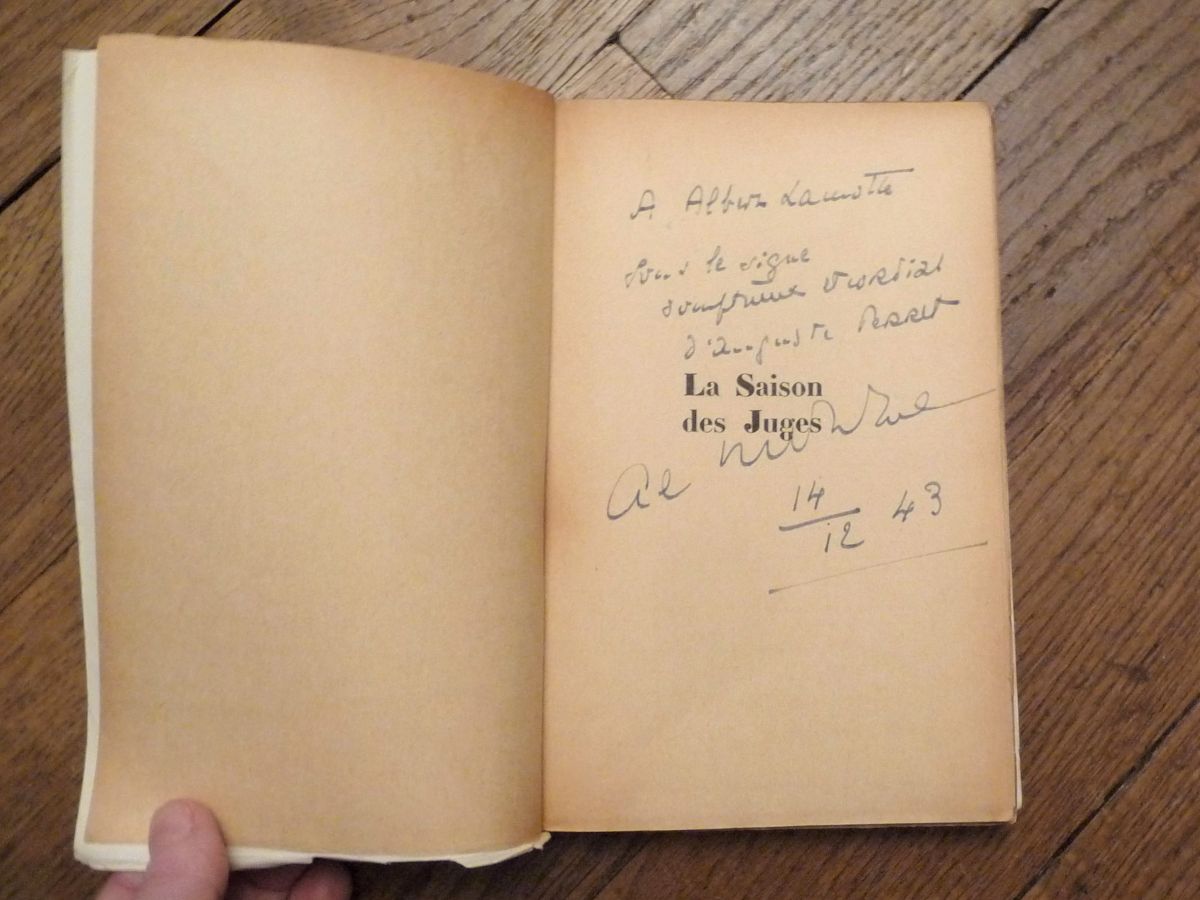 A Albert Lamotte
Sous le signe
somptueux & cordial
d'Auguste Perret
La Saison
des Juges
14
12 43